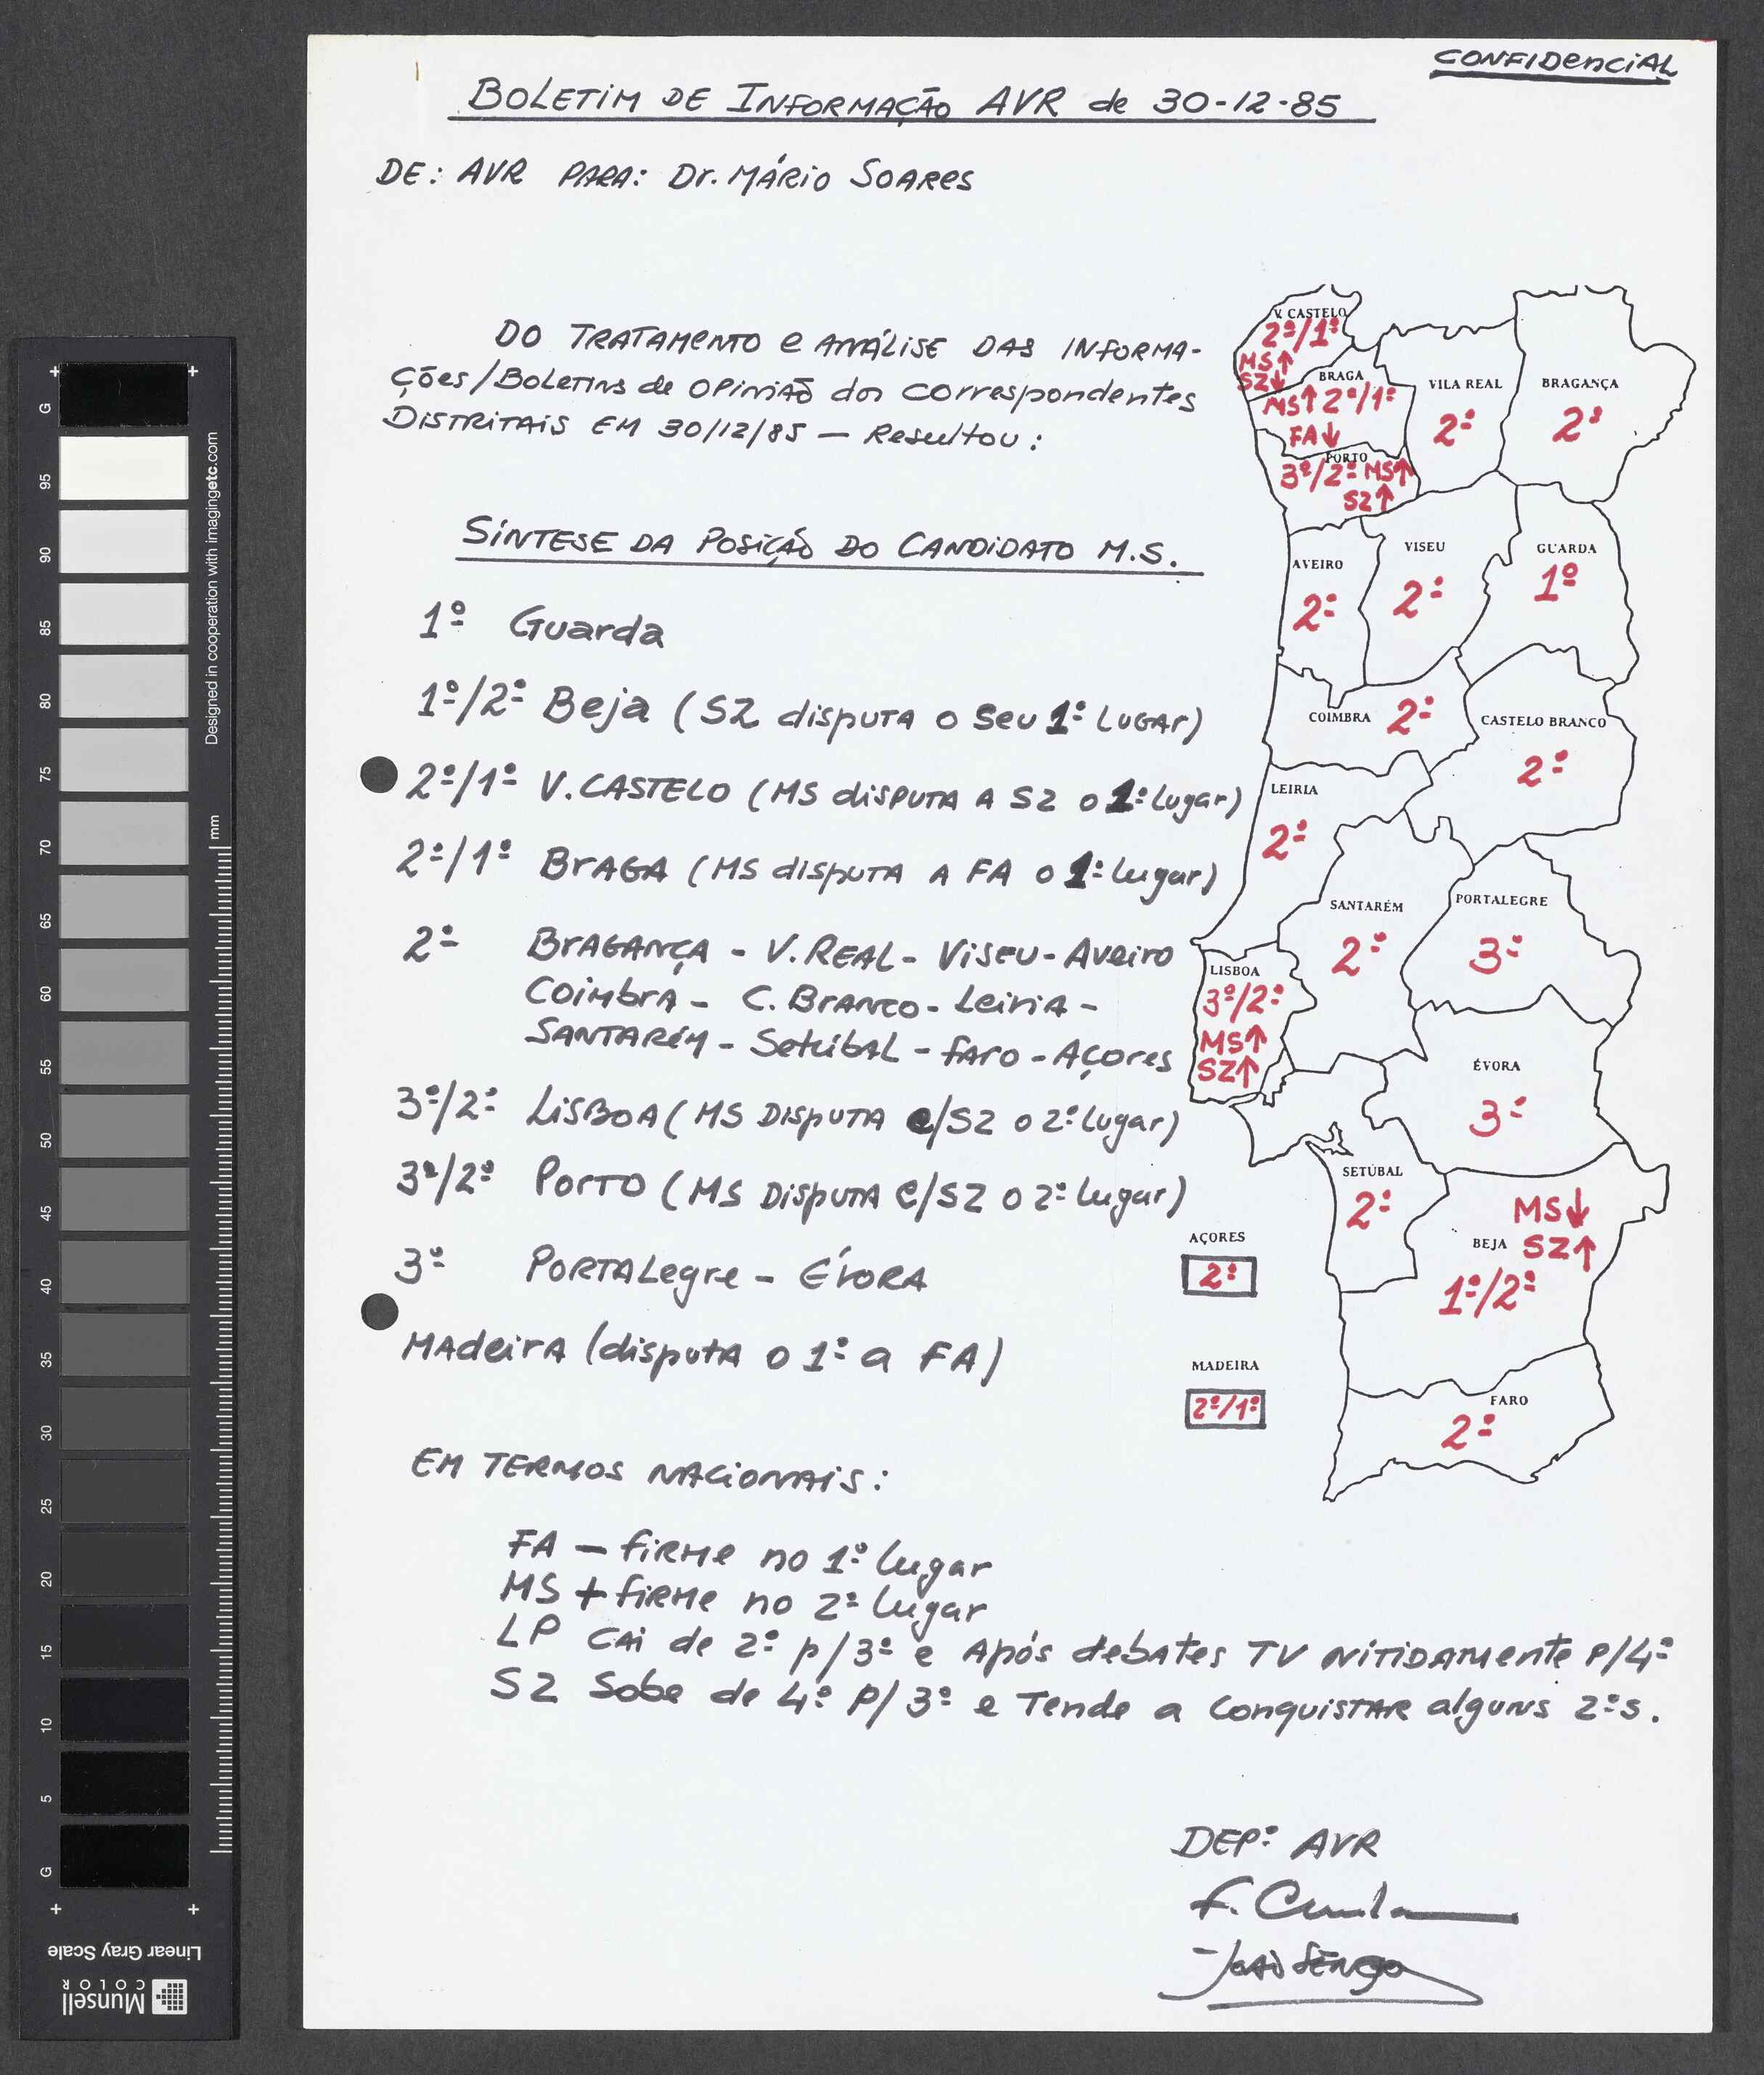 CONFIDENCIAL
BOLETIM DE INFORMAÇÃO AVR de 30-12-85
DE: AVR PARA: Dr. MÁRIO SOARES
DO TRATAMENTO e ANÁLISE DAS INFORMA-
ÇÕES/BOLETINS de OPINIÃO dos correspondentes
DISTRITAIS EM 30/12/85 — Resultou:
SÍNTESE DA POSIÇÃO DO CANDIDATO M.S.
1º Guarda
1º/2º Beja (SZ disputa o seu 1º LUGAr)
2º/1º V. CASTELO (MS disputa A SZ o 1º lugar)
2º/1º BrAGA (MS disputa A FA o 1º lugar)
2º BrAGANÇA - V. REAL - Viseu - Aveiro
Coimbra - C. Branco - Leiria -
SANTARÉM - Setúbal - faro - Açores
3º/2º LISBOA (MS DISPUTA c/SZ o 2º lugar)
3º/2º PORTO (MS DISPUTA c/SZ o 2º lugar)
3º PORTALegre - ÉVORA
MAdeirA (disputa o 1º a FA)
EM TERMOS NACIONAIS:
FA — firme no 1º lugar
MS + firme no 2º lugar
LP cai de 2º p/3º e Após debates TV NITIDAMente P/4º
SZ Sobe de 4º P/3º e Tende a conquistar alguns 2ºs.
DEPº AVR
V. CASTELO
2º/1º
MS↑
SZ↓
BRAGA
MS↑ 2º/1º
FA↓
PORTO
3º/2º MS↑
SZ↑
VILA REAL
2º
BRAGANÇA
2º
AVEIRO
2º
VISEU
2º
GUARDA
1º
COIMBRA 2º
CASTELO BRANCO
2º
LEIRIA
2º
SANTARÉM
2º
PORTALEGRE
3º
LISBOA
3º/2º
MS↑
SZ↑
ÉVORA
3º
SETÚBAL
2º
MS↓
BEJA SZ↑
1º/2º
AÇORES
2º
MADEIRA
2º/1º
FARO
2º
+ +
G
95
90
85
80
75
70
65
60
55
50
45
40
35
30
25
20
15
10
5
G
+ +
mm
Designed in cooperation with imagingetc.com
Linear Gray Scale
Munsell
COLOR